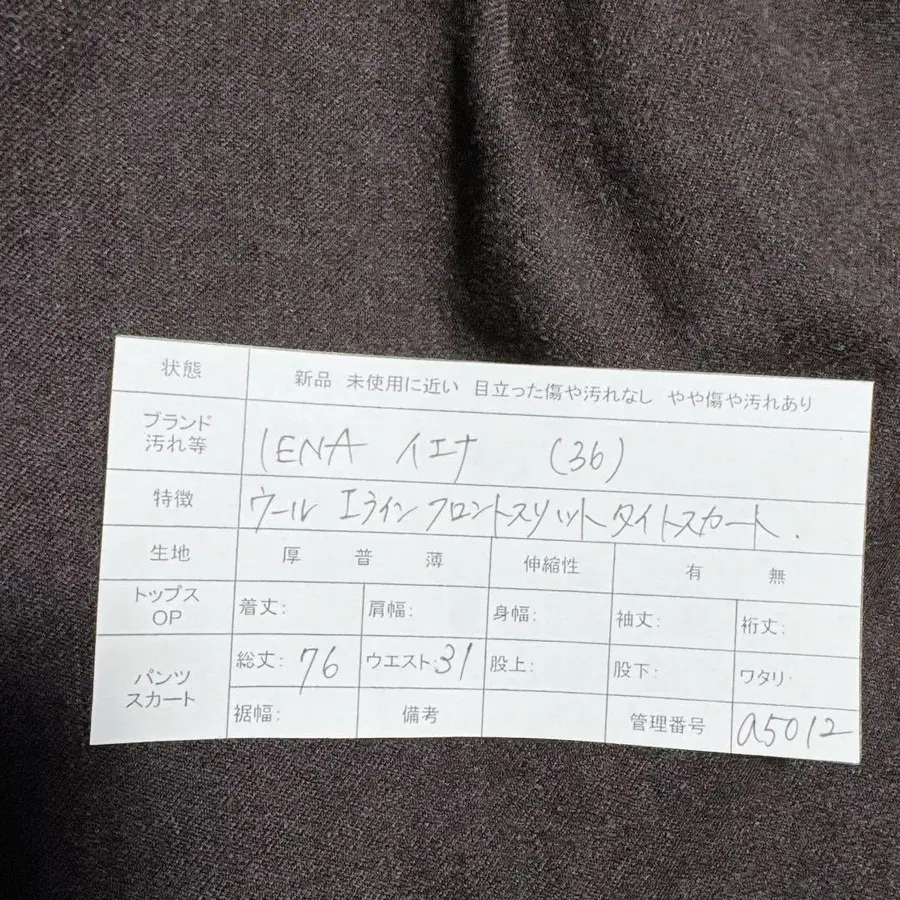 状態 新品 未使用に近い 目立った傷や汚れなし やや傷や汚れあり
ブランド
汚れ等 IENA イエナ (36)
特徴 ウール Iライン フロントスリット タイトスカート.
生地 厚 普 薄 伸縮性 有 無
トップス
OP 着丈: 肩幅: 身幅: 袖丈: 裄丈:
パンツ
スカート 総丈: 76 ウエスト: 31 股上: 股下: ワタリ:
裾幅: 備考 管理番号 a5012